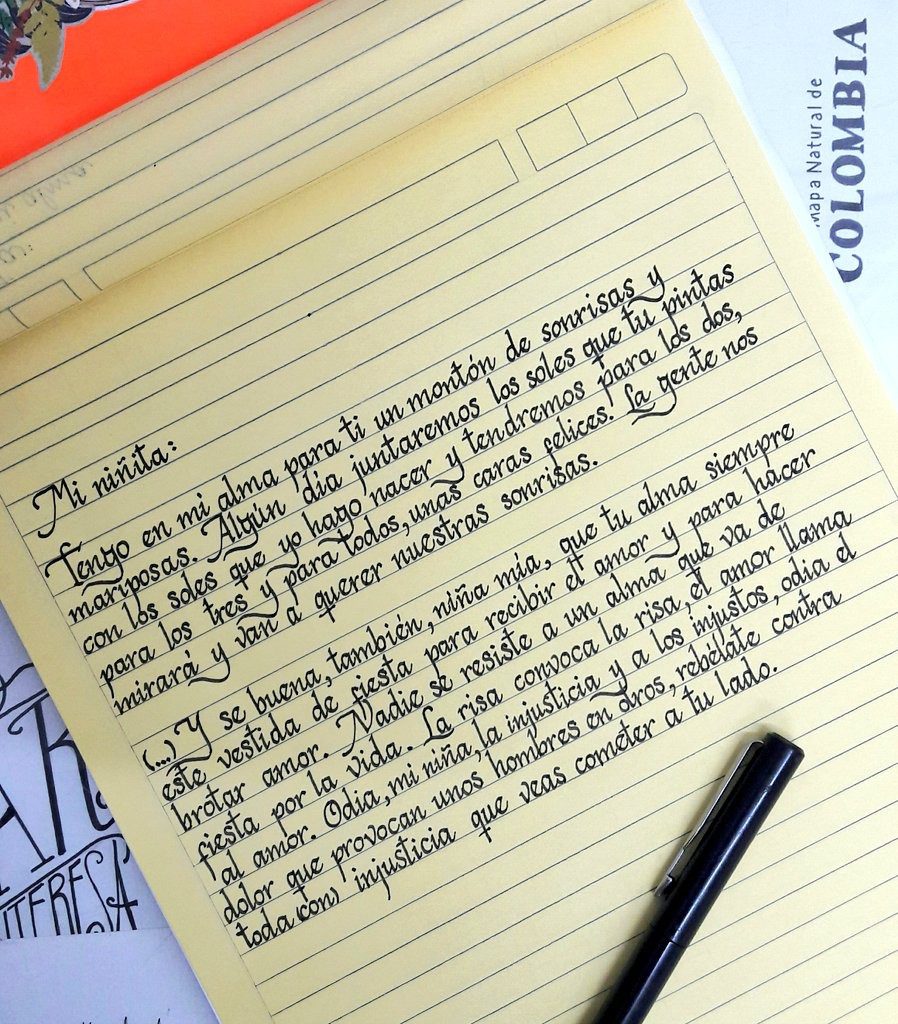 Mapa Natural de
COLOMBIA
Mi niñita:
Tengo en mi alma para ti un montón de sonrisas y
mariposas. Algún día juntaremos los soles que tu pintas
con los soles que yo hago nacer y tendremos para los dos,
para los tres y para todos, unas caras felices. La gente nos
mirará y van a querer nuestras sonrisas.
(...) Y se buena, también, niña mía, que tu alma siempre
este vestida de fiesta para recibir el amor y para hacer
brotar amor. Nadie se resiste a un alma que va de
fiesta por la vida. La risa convoca la risa, el amor llama
al amor. Odia, mi niña, la injusticia y a los injustos, odia el
dolor que provocan unos hombres en otros, rebélate contra
toda (con) injusticia que veas cometer a tu lado.